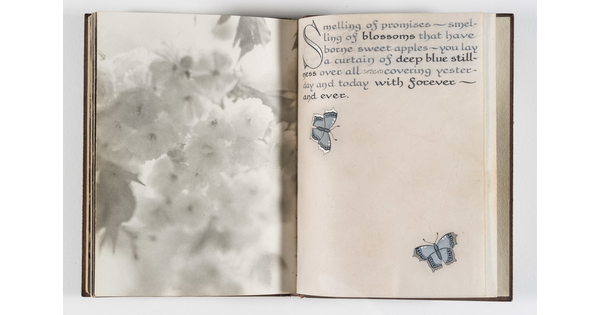 Smelling of promises — smel-
ling of blossoms that have
borne sweet apples — you lay
a curtain of deep blue still-
ness over all — covering yester-
day and today with Forever —
and ever.